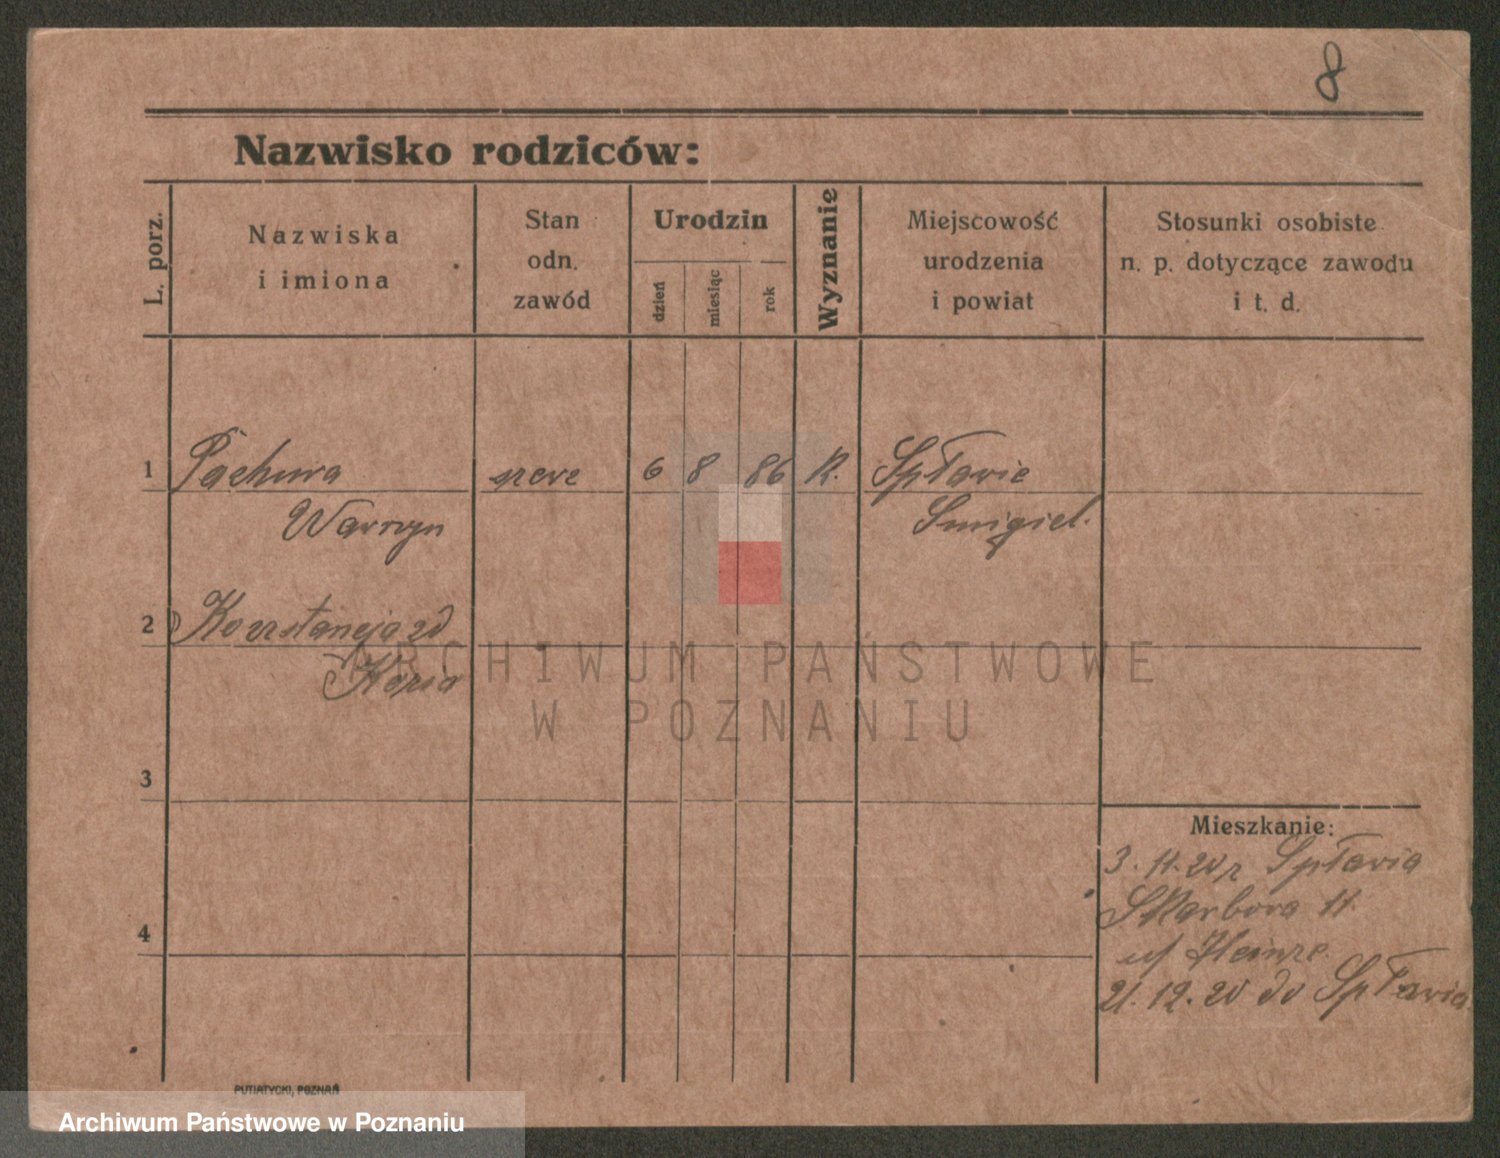 8
Nazwisko rodziców:
L. porz.
Nazwiska
i imiona
Stan
odn.
zawód
Urodzin
dzień
miesiąc
rok
Wyznanie
Miejscowość
urodzenia
i powiat
Stosunki osobiste
n. p. dotyczące zawodu
i t. d.
1 Pachura 6 8 86 R. Spławie
Wawrzyn Śmigiel.
2
Maria
3
4
Mieszkanie:
3. 11. 20 r Spławia
Skarbova 11.
u/ Heinze.
21. 12. 20 do Spławia.
ARCHIWUM PAŃSTWOWE
W POZNANIU
PUTIATYCKI, POZNAŃ
Archiwum Państwowe w Poznaniu